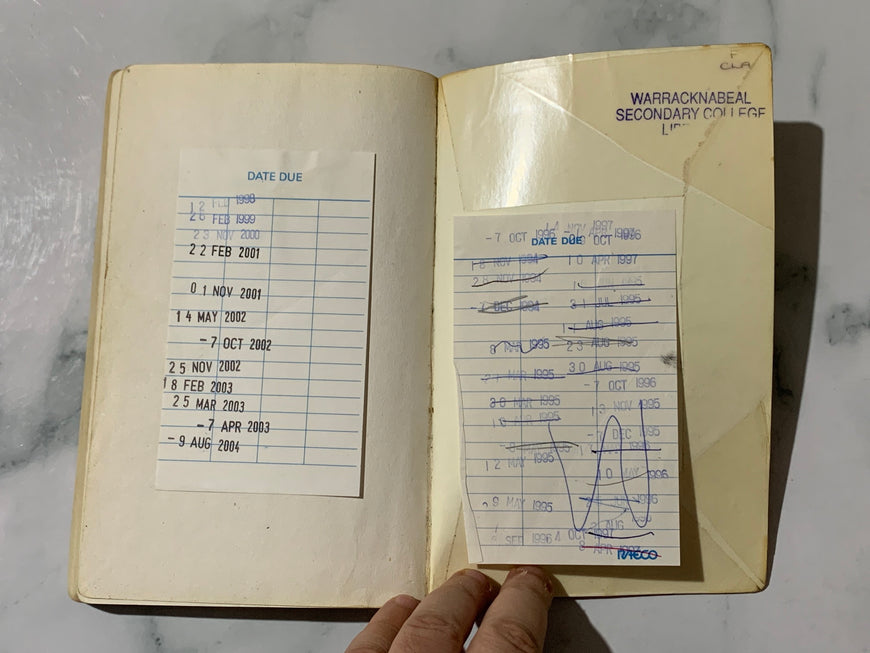 DATE DUE
12 1998
26 FEB 1999
23 NOV 2000
22 FEB 2001
01 NOV 2001
14 MAY 2002
-7 OCT 2002
25 NOV 2002
18 FEB 2003
25 MAR 2003
-7 APR 2003
-9 AUG 2004
F
CLA
WARRACKNABEAL
SECONDARY COLLEGE
14 NOV 1997
-7 OCT 1995
DATE DUE
OCT 1996
NOV 1994 10 APR 1997
28 NOV 1994
-7 DEC 1994 31 JUL 1995
AUG 1995
1995 23 AUG 1995
MAR 1995 30 AUG 1995
-7 OCT 1996
30 MAR 1995 13 NOV 1995
1995 -7 DEC 1995
12 MAY 1995 10 MAY 1996
MAY 1995 1996
AUG
SEP 1996 4 OCT 1997
8 APR
RAECO